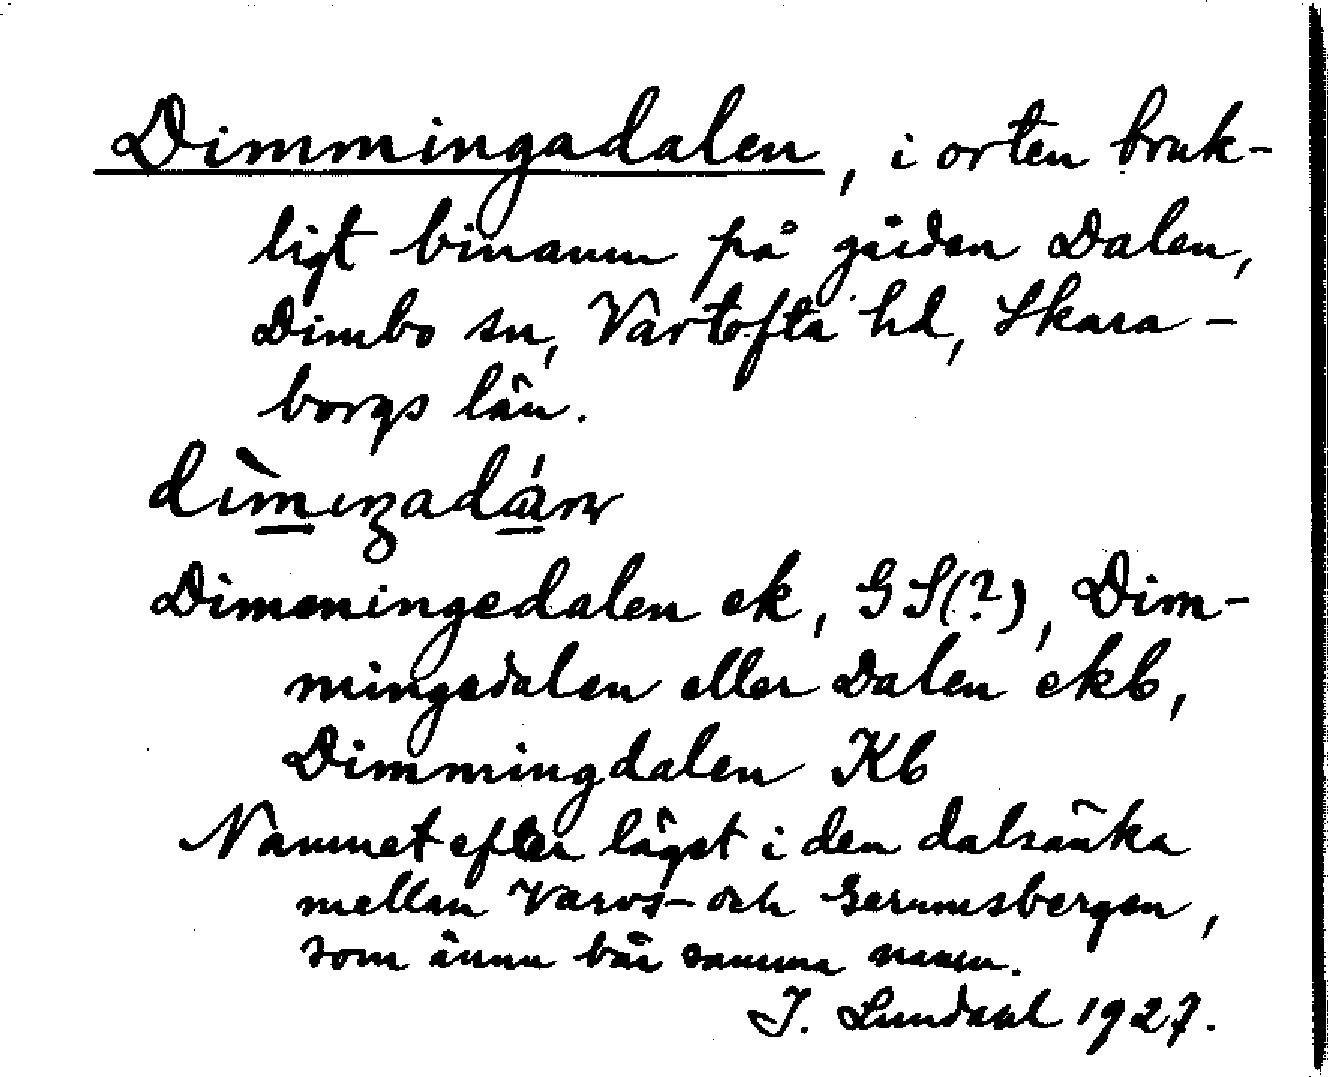 Dimmingadalen, i orten bruk-
ligt binamn på gården Dalen,
Dimbo sn, Vartofta hd, Skara-
borgs län.
Dimmingedalen ek, GS(?), Dim-
mingedalen eller Dalen ekb,
Dimmingdalen Kb
Namnet efter läget i den dalsänka
mellan Varvs- och Gerumsbergen,
som ännu bär samma namn.
I. Lundahl 1927.